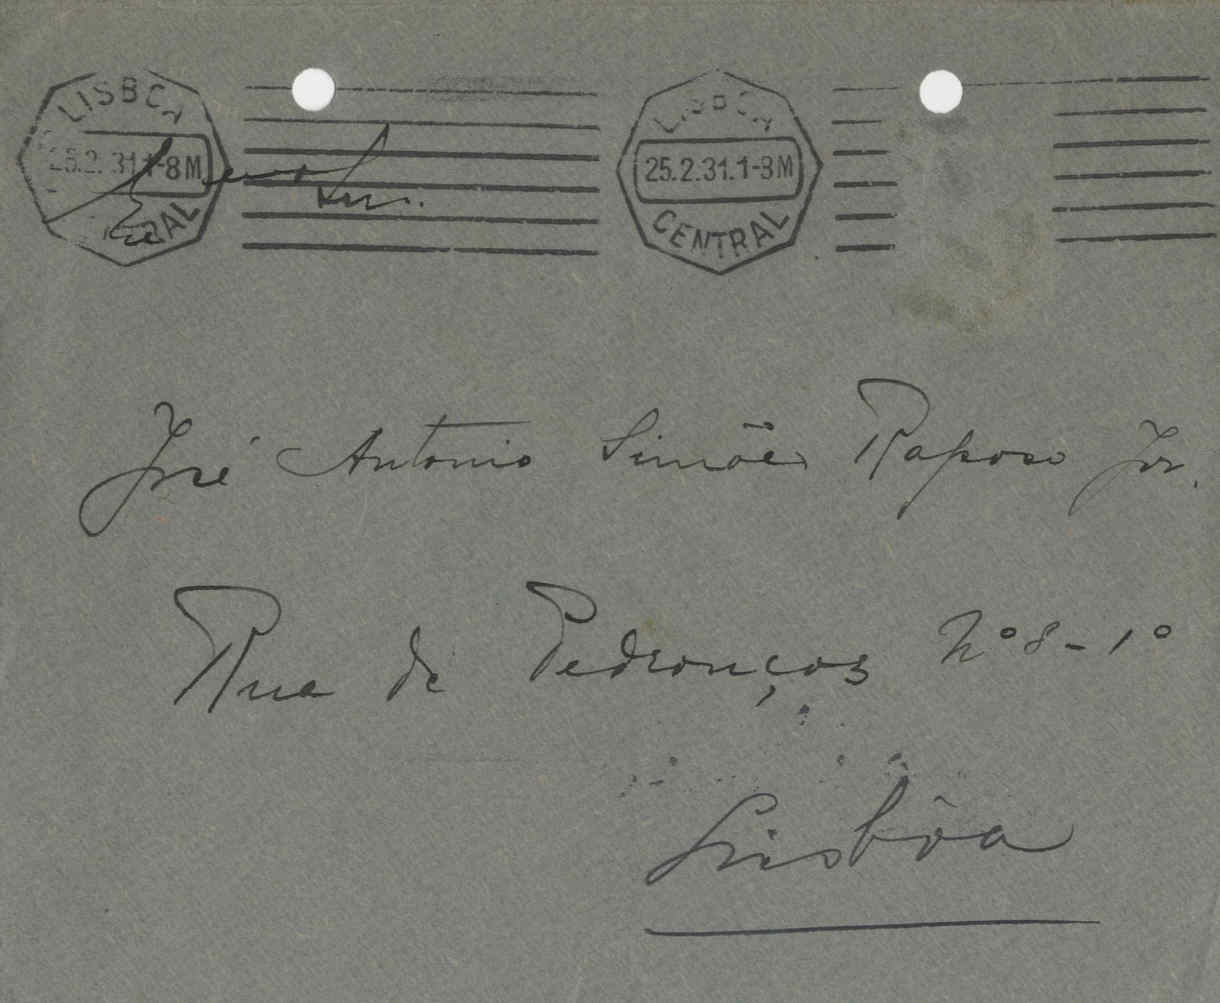 LISBOA LISBOA
25.2.31.1-8M 25.2.31.1-8M
CENTRAL
José Antonio Simões Raposo Jor.
Rua de Pedrouços Nº 8 - 1º
Lisbôa